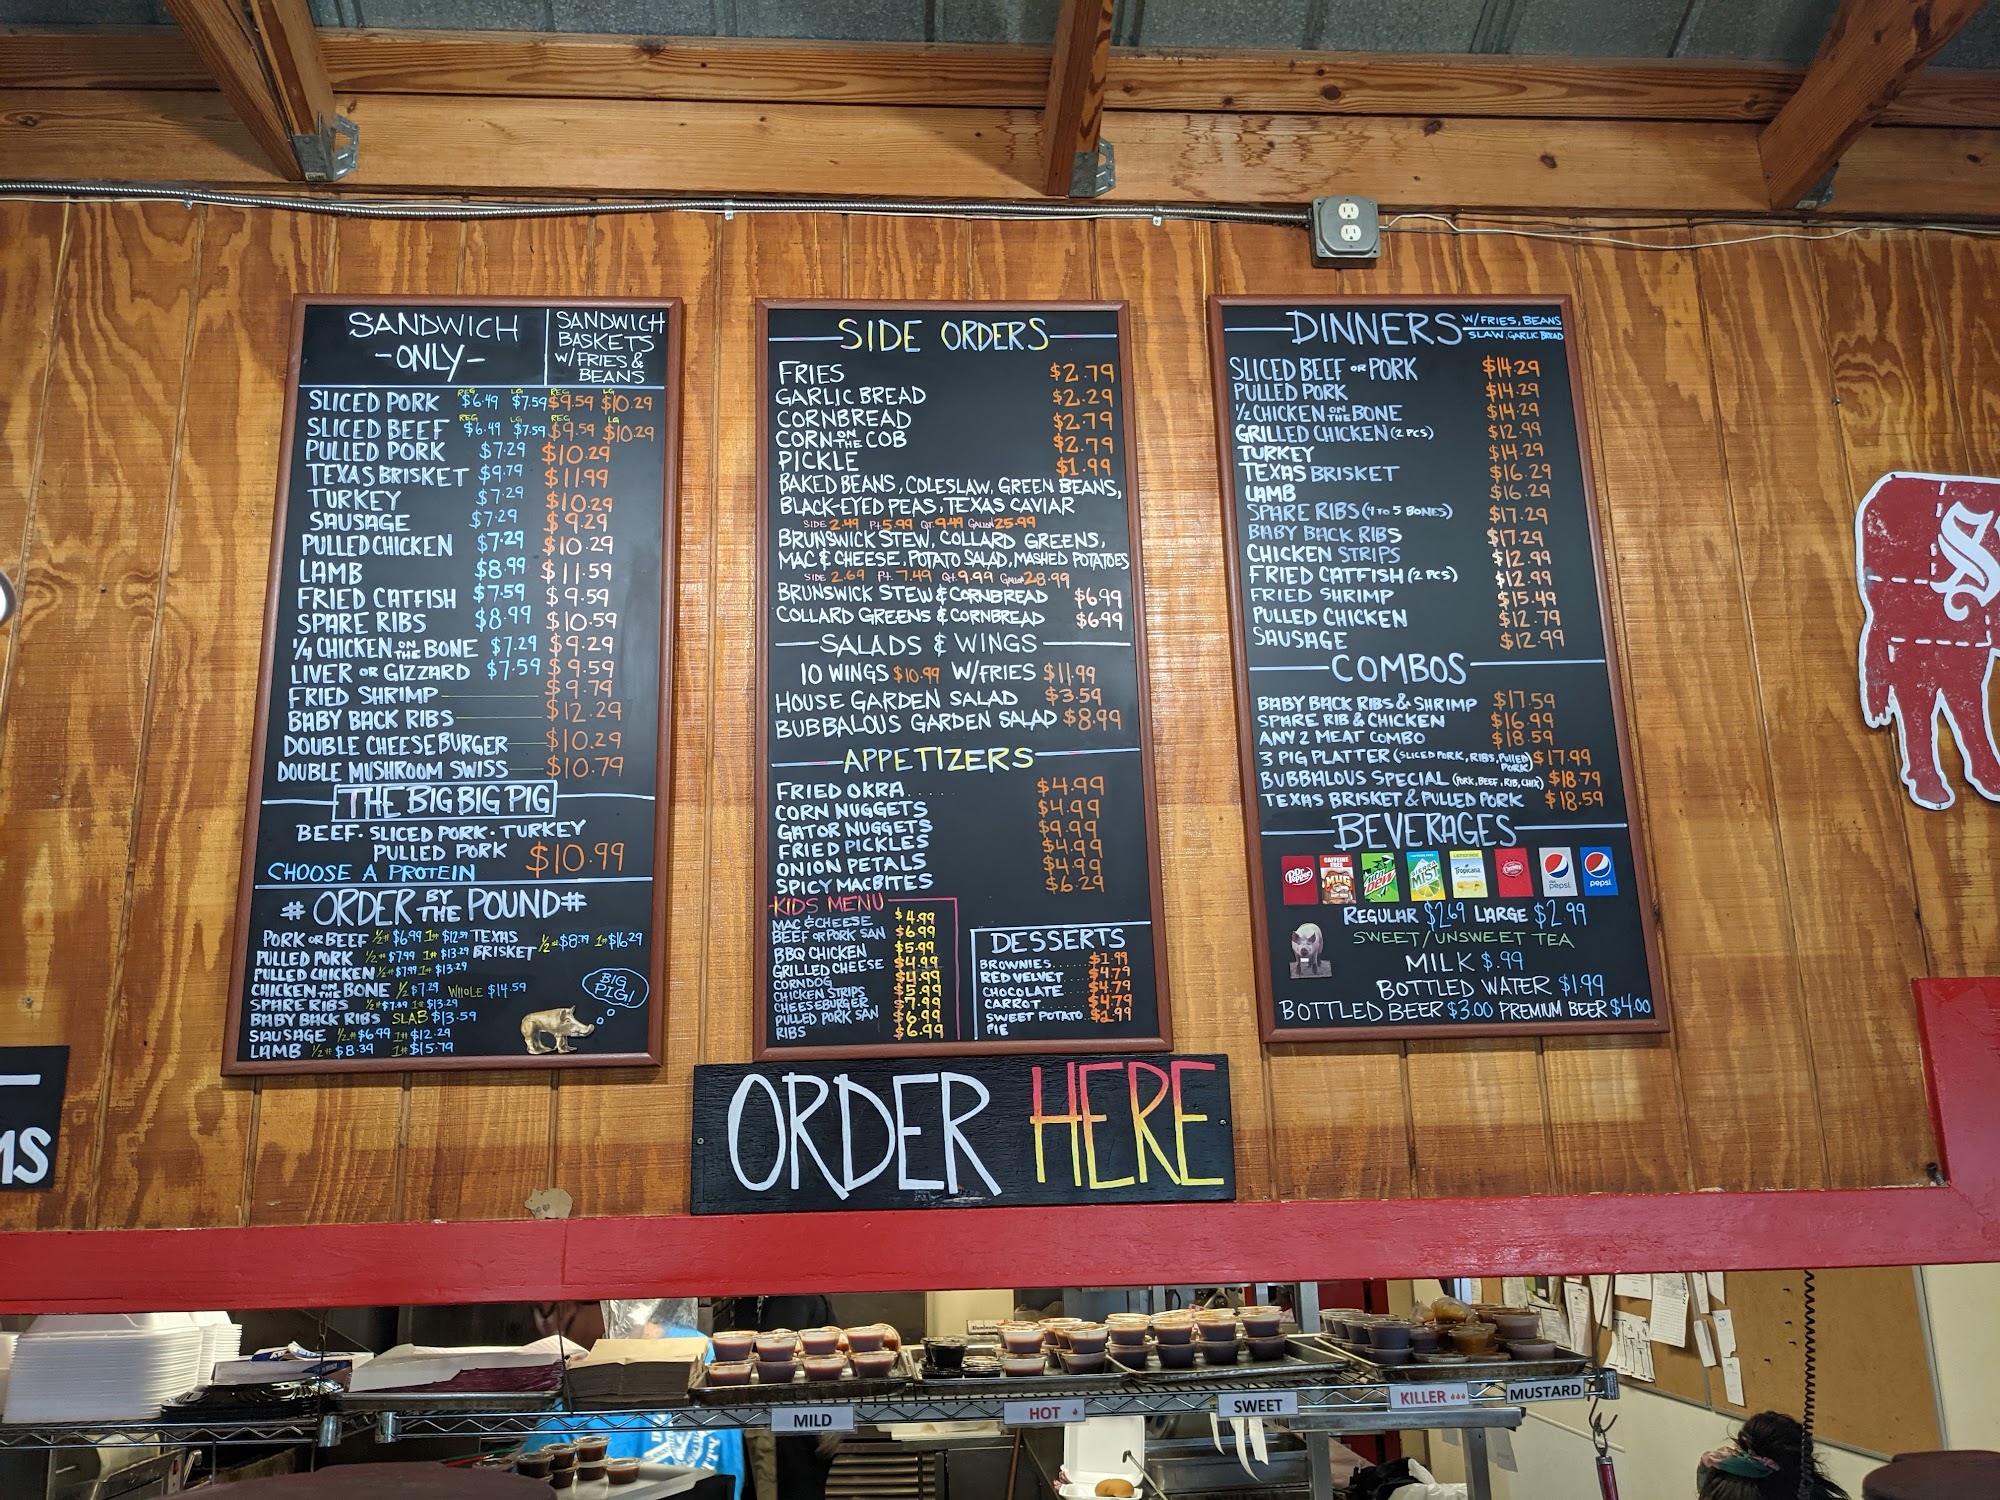 SANDWICH
-ONLY-
SANDWICH
BASKETS
W/FRIES &
BEANS
REG LG REG LG
SLICED PORK $6.49 $7.59 $9.59 $10.29
REG LG REG LG
SLICED BEEF $6.49 $7.59 $9.59 $10.29
PULLED PORK $7.29 $10.29
TEXAS BRISKET $9.79 $11.99
TURKEY $7.29 $10.29
SAUSAGE $7.29 $9.29
PULLED CHICKEN $7.29 $10.29
LAMB $8.99 $11.59
FRIED CATFISH $7.59 $9.59
SPARE RIBS $8.99 $10.59
1/4 CHICKEN ON THE BONE $7.29 $9.29
LIVER OR GIZZARD $7.59 $9.59
FRIED SHRIMP $9.79
BABY BACK RIBS $12.29
DOUBLE CHEESEBURGER $10.29
DOUBLE MUSHROOM SWISS $10.79
THE BIG BIG PIG
BEEF · SLICED PORK · TURKEY
PULLED PORK $10.99
CHOOSE A PROTEIN
# ORDER BY THE POUND #
PORK OR BEEF 1/2# $6.99 1# $12.59 TEXAS BRISKET 1/2# $8.79 1# $16.29
PULLED PORK 1/2# $7.99 1# $13.29
PULLED CHICKEN 1/2# $7.99 1# $13.29
CHICKEN ON THE BONE 1/2 $7.29 WHOLE $14.59
SPARE RIBS 1/2# $7.99 1# $13.29
BABY BACK RIBS SLAB $13.59
SAUSAGE 1/2# $6.99 1# $12.29
LAMB 1/2# $8.39 1# $15.79
BIG
PIG!
SIDE ORDERS
FRIES $2.79
GARLIC BREAD $2.29
CORNBREAD $2.79
CORN ON THE COB $2.79
PICKLE $1.99
BAKED BEANS, COLESLAW, GREEN BEANS,
BLACK-EYED PEAS, TEXAS CAVIAR
SIDE 2.49 Pt. 5.99 QT. 9.49 GALLON 25.99
BRUNSWICK STEW, COLLARD GREENS,
MAC & CHEESE, POTATO SALAD, MASHED POTATOES
SIDE 2.69 Pt. 7.49 Qt. 9.99 GALLON 28.99
BRUNSWICK STEW & CORNBREAD $6.99
COLLARD GREENS & CORNBREAD $6.99
SALADS & WINGS
10 WINGS $10.99 W/FRIES $11.99
HOUSE GARDEN SALAD $3.59
BUBBALOUS GARDEN SALAD $8.99
APPETIZERS
FRIED OKRA..... $4.99
CORN NUGGETS $4.99
GATOR NUGGETS $9.99
FRIED PICKLES $4.99
ONION PETALS $4.99
SPICY MACBITES $6.29
KIDS MENU
MAC & CHEESE $4.99
BEEF OR PORK SAN $6.99
BBQ CHICKEN $5.99
GRILLED CHEESE $4.99
CORNDOG $4.99
CHICKEN STRIPS $5.99
CHEESEBURGER $7.99
PULLED PORK SAN $5.99
RIBS $6.99
DESSERTS
BROWNIES..... $1.99
RED VELVET..... $4.79
CHOCOLATE..... $4.79
CARROT..... $4.79
SWEET POTATO.. $2.99
PIE
DINNERS W/FRIES, BEANS
SLAW, GARLIC BREAD
SLICED BEEF OR PORK $14.29
PULLED PORK $14.29
1/2 CHICKEN ON THE BONE $14.29
GRILLED CHICKEN (2 PCS) $12.99
TURKEY $14.29
TEXAS BRISKET $16.29
LAMB $16.29
SPARE RIBS (4 TO 5 BONES) $17.29
BABY BACK RIBS $17.29
CHICKEN STRIPS $12.99
FRIED CATFISH (2 PCS) $12.99
FRIED SHRIMP $15.49
PULLED CHICKEN $12.79
SAUSAGE $12.99
COMBOS
BABY BACK RIBS & SHRIMP $17.59
SPARE RIB & CHICKEN $16.99
ANY 2 MEAT COMBO $18.59
3 PIG PLATTER (SLICED PORK, RIBS, PULLED PORK) $17.99
BUBBALOUS SPECIAL (PORK, BEEF, RIB, CHIX) $18.79
TEXAS BRISKET & PULLED PORK $18.59
BEVERAGES
Dr Pepper
CAFFEINE FREE
MUG
Mtn Dew
Sierra Mist
LEMONADE
Tropicana
diet pepsi
pepsi
REGULAR $2.69 LARGE $2.99
SWEET/UNSWEET TEA
MILK $.99
BOTTLED WATER $1.99
BOTTLED BEER $3.00 PREMIUM BEER $4.00
ORDER HERE
MS
S
MILD
HOT
SWEET
KILLER
MUSTARD